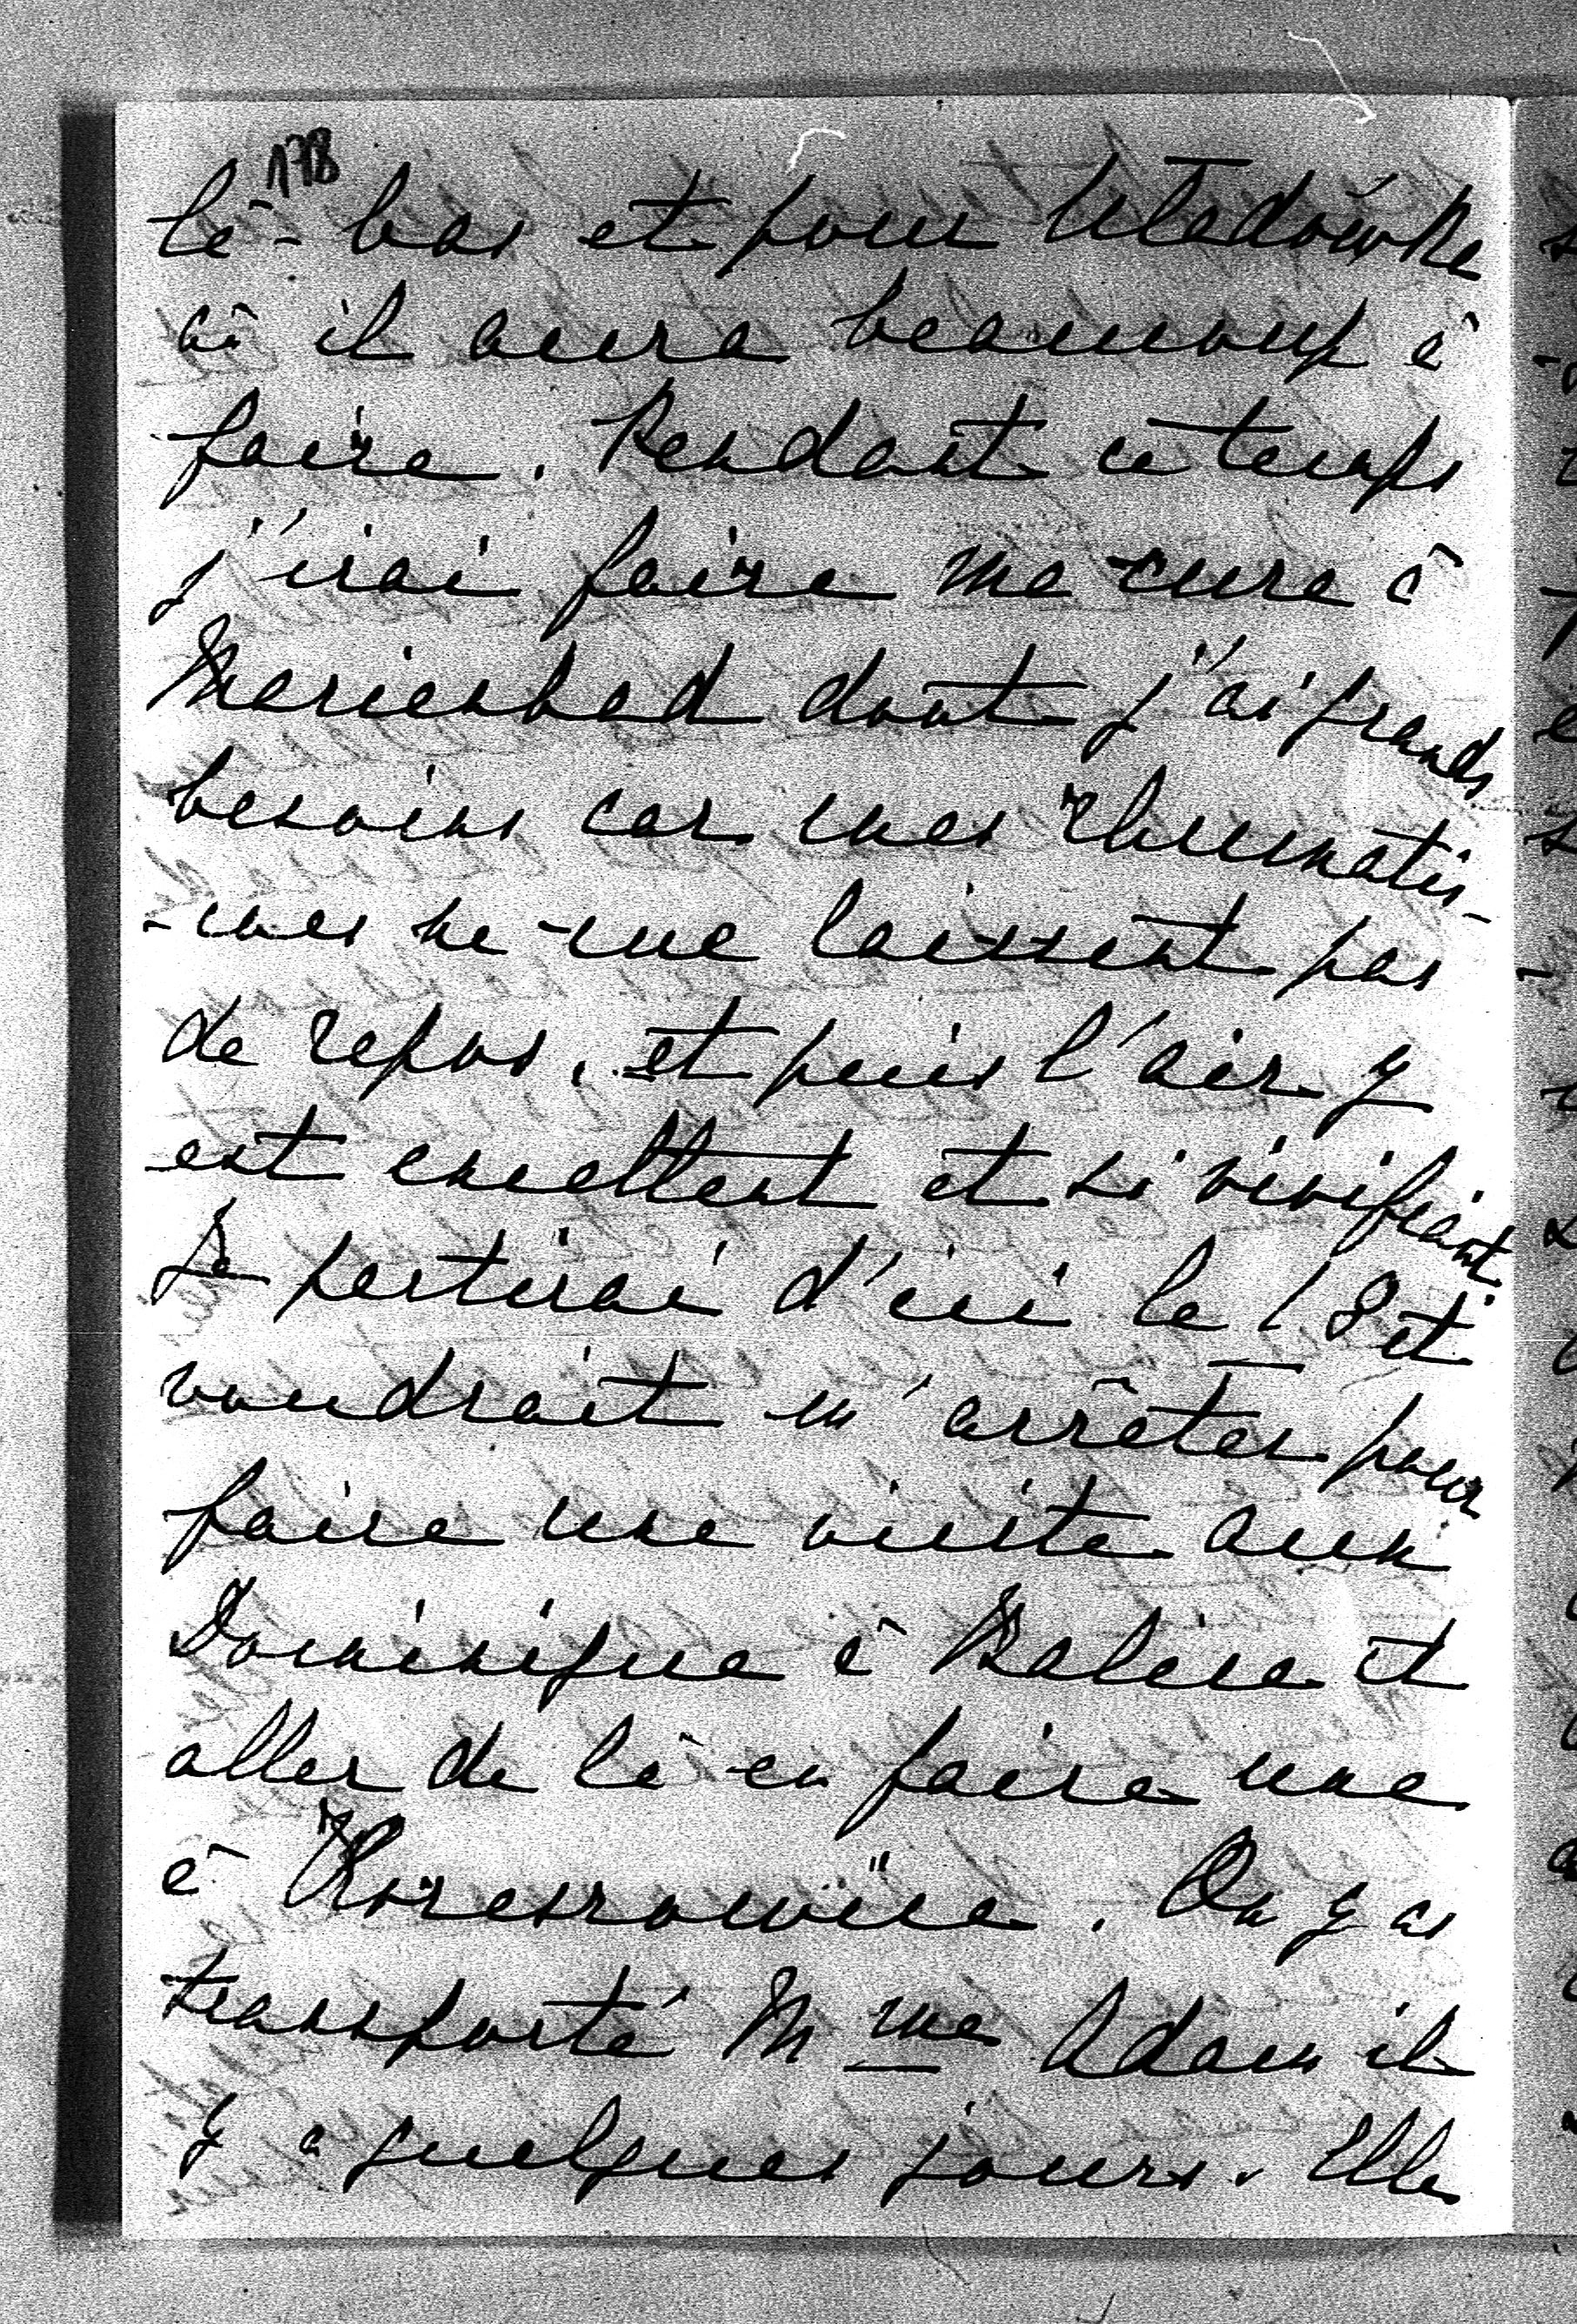 178
là-bas et pour Uładówke
où il aura beaucoup à
faire. Pendant ce temps
j'irai faire ma cure à
Marienbad dont j'ai grands
besoins car mes rhumatis-
-mes ne me laissent pas
de repos, et puis l'air y
est excellent et si vivifiant.
Je partirai d'ici le 18 et
voudrait m'arrêter pour
faire une visite aux
Dominique à Balice et
aller de là en faire une
à . On y a
transporté Mme Adam il
y a quelques jours. Elle